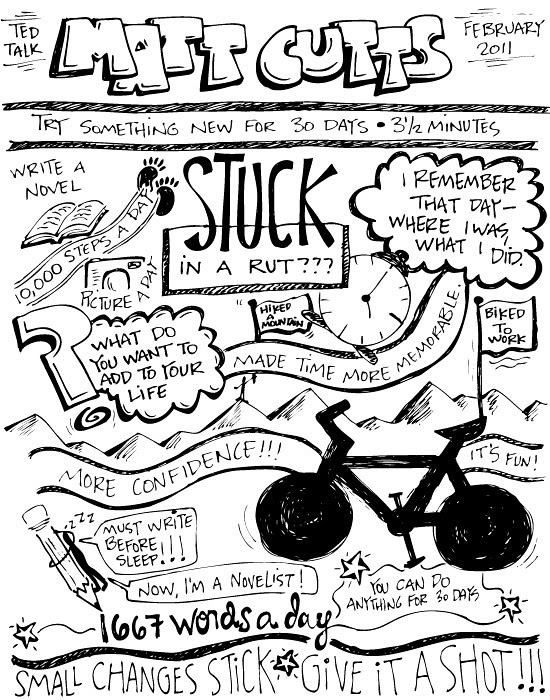 TED
TALK
MATT CUTTS
FEBRUARY
2011
TRY SOMETHING NEW FOR 30 DAYS • 3 1/2 MINUTES
WRITE A
NOVEL
10,000 STEPS A DAY
PICTURE A DAY
STUCK
IN A RUT???
I REMEMBER
THAT DAY—
WHERE I WAS,
WHAT I DID.
?
WHAT DO
YOU WANT TO
ADD TO YOUR
LIFE
HIKED
A
MOUNTAIN
MADE TIME MORE MEMORABLE.
BIKED
TO
WORK
MORE CONFIDENCE!!!
IT'S FUN!
zzz
MUST WRITE
BEFORE
SLEEP!!!
NOW, I'M A NOVELIST!
1667 words a day
YOU CAN DO
ANYTHING FOR 30 DAYS
SMALL CHANGES STICK GIVE IT A SHOT!!!